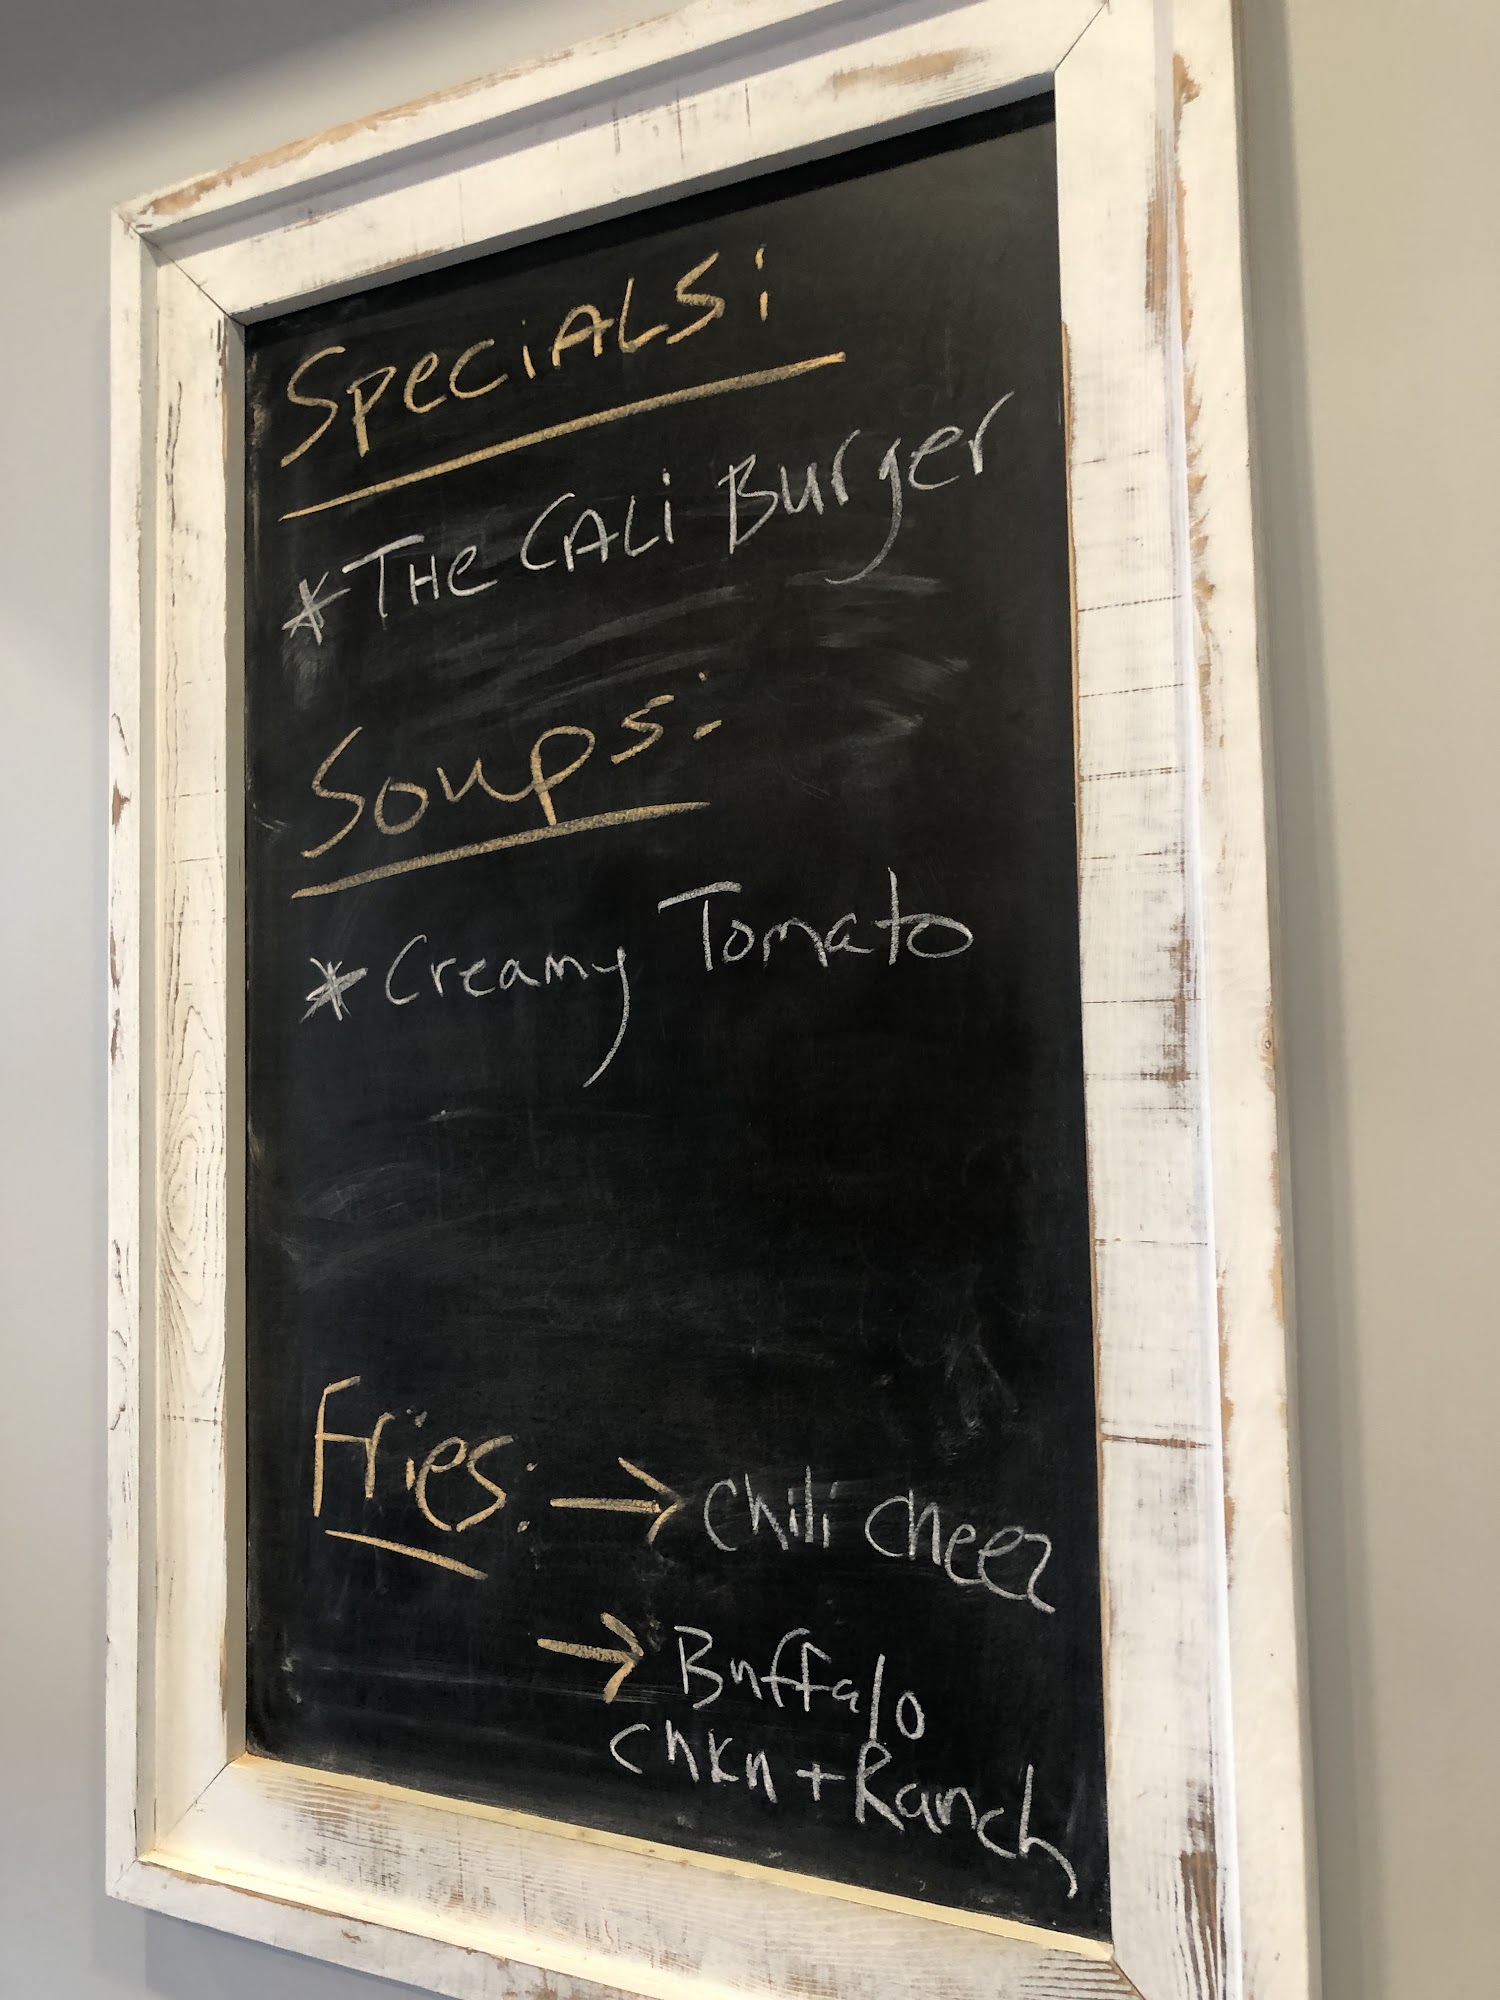 Specials:
* The Cali Burger
Soups:
* Creamy Tomato
Fries: → Chili Cheez
→ Buffalo
Chkn + Ranch